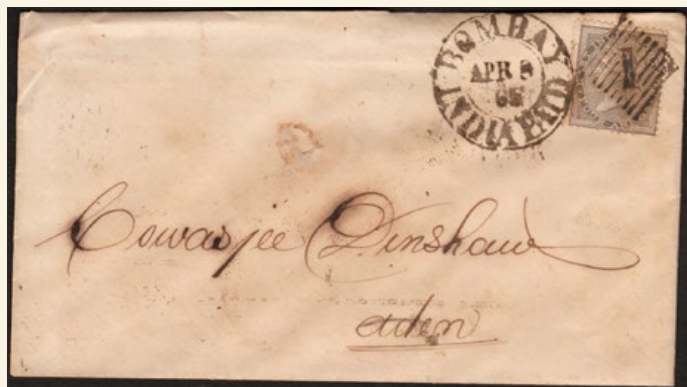 BOMBAY
APR 9
65
INDIA PAID
1
Cowasjee Dinshaw
aden